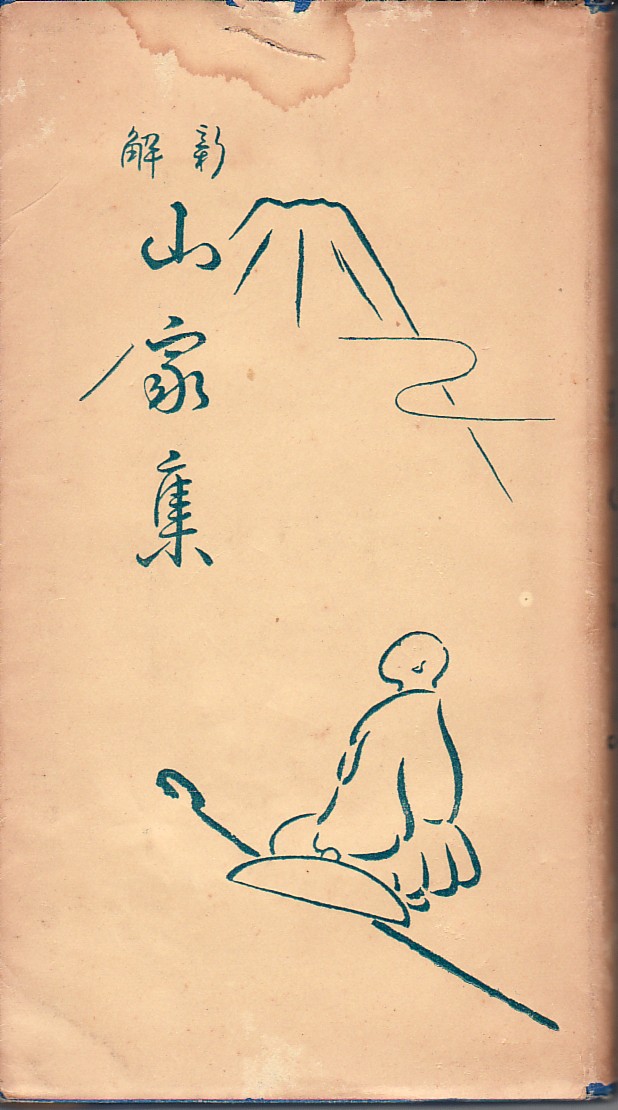 新解
山家集